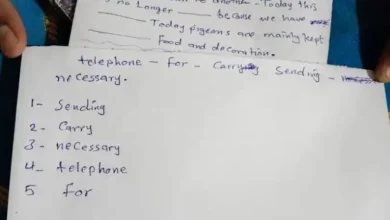 another - Today this
no longer ______ because we have
______ Today pigeons are mainly kept
food and decoration.
telephone - for - Carry Sending -
necessary.
1- Sending
2- Carry
3- necessary
4- telephone
5 for